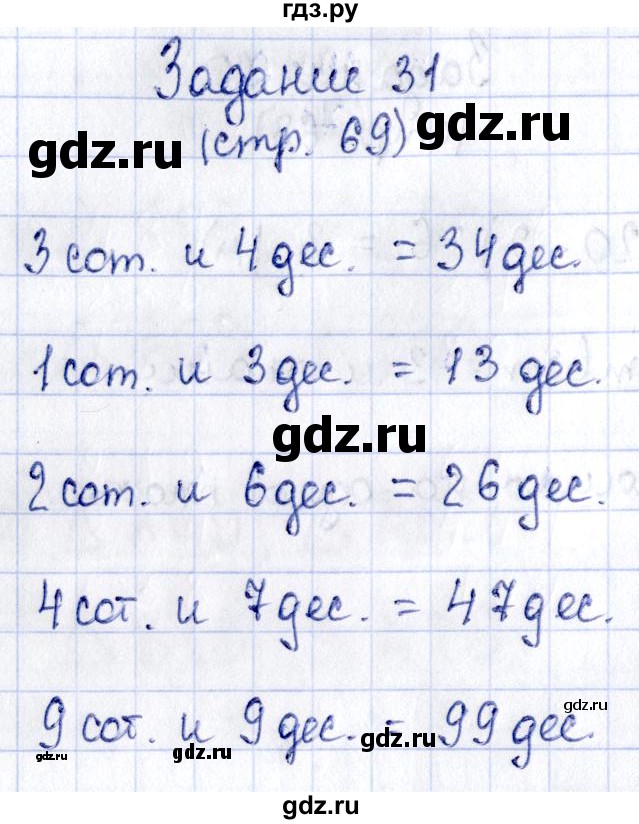 гдз.ру
Задание 31
gdz.ru
(стр. 69)
gdz.ru
3 сот. и 4 дес. = 34 дес.
1 сот. и 3 дес. = 13 дес.
gdz.ru
2 сот. и 6 дес. = 26 дес.
4 сот. и 7 дес. = 47 дес.
gdz.ru
9 сот. и 9 дес. = 99 дес.
gdz.ru
gdz.ru
gdz.ru
gdz.ru